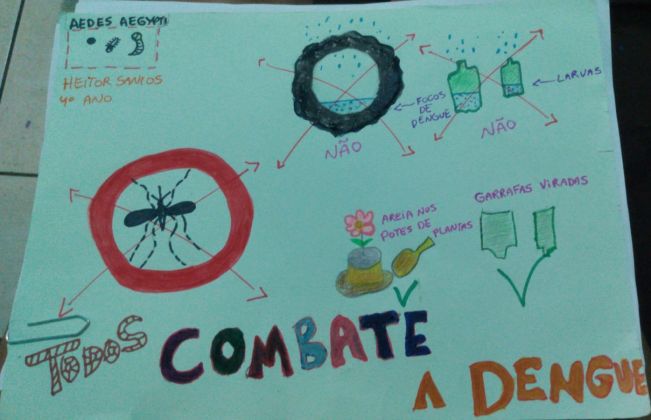 AEDES AEGYPTI
HEITOR SANTOS
4º ANO
FOCOS
DE
DENGUE
NÃO
LARVAS
NÃO
AREIA NOS
POTES DE
PLANTAS
GARRAFAS VIRADAS
TODOS COMBATE
A DENGUE